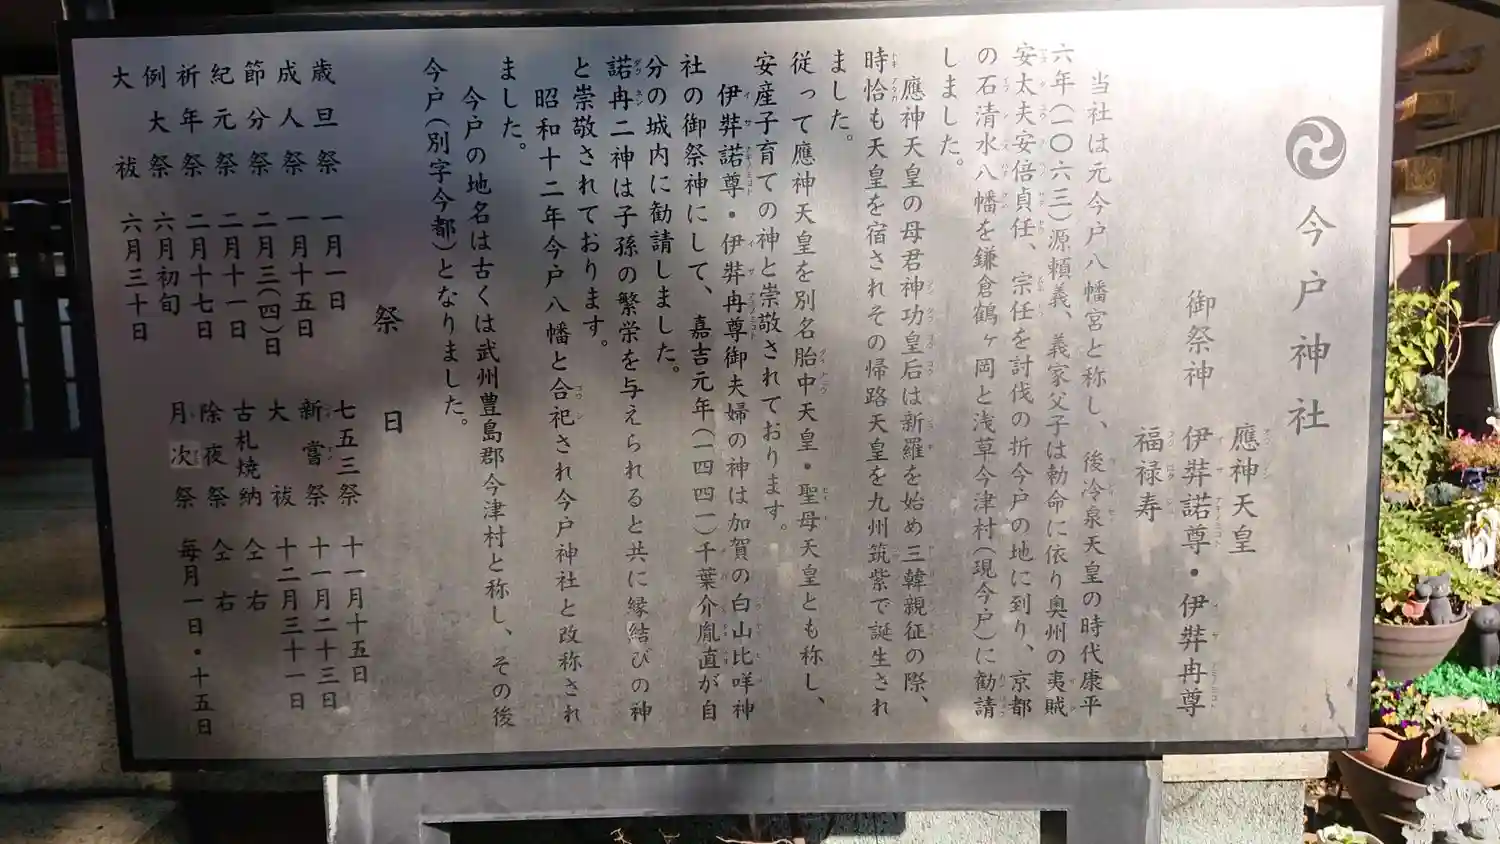 今戸神社
御祭神
應神天皇
伊弉諾尊・伊弉冉尊
福禄寿
当社は元今戸八幡宮と称し、後冷泉天皇の時代康平
六年(一〇六三)源頼義、義家父子は勅命に依り奥州の夷賊
安太夫安倍貞任、宗任を討伐の折今戸の地に到り、京都
の石清水八幡を鎌倉鶴ヶ岡と浅草今津村(現今戸)に勧請
しました。
應神天皇の母君神功皇后は新羅を始め三韓親征の際、
時恰も天皇を宿されその帰路天皇を九州筑紫で誕生され
ました。
従って應神天皇を別名胎中天皇・聖母天皇とも称し、
安産子育ての神と崇敬されております。
伊弉諾尊・伊弉冉尊御夫婦の神は加賀の白山比咩神
社の御祭神にして、嘉吉元年(一四四一)千葉介胤直が自
分の城内に勧請しました。
諾冉二神は子孫の繁栄を与えられると共に縁結びの神
と崇敬されております。
昭和十二年今戸八幡と合祀され今戸神社と改称され
ました。
今戸の地名は古くは武州豊島郡今津村と称し、その後
今戸(別字今都)となりました。
祭日
歳旦祭 一月一日
成人祭 一月十五日
節分祭 二月三(四)日
紀元祭 二月十一日
祈年祭 二月十七日
例大祭 六月初旬
大祓 六月三十日
七五三祭 十一月十五日
新嘗祭 十一月二十三日
大祓 十二月三十一日
古札焼納 仝右
除夜祭 仝右
月次祭 毎月一日・十五日